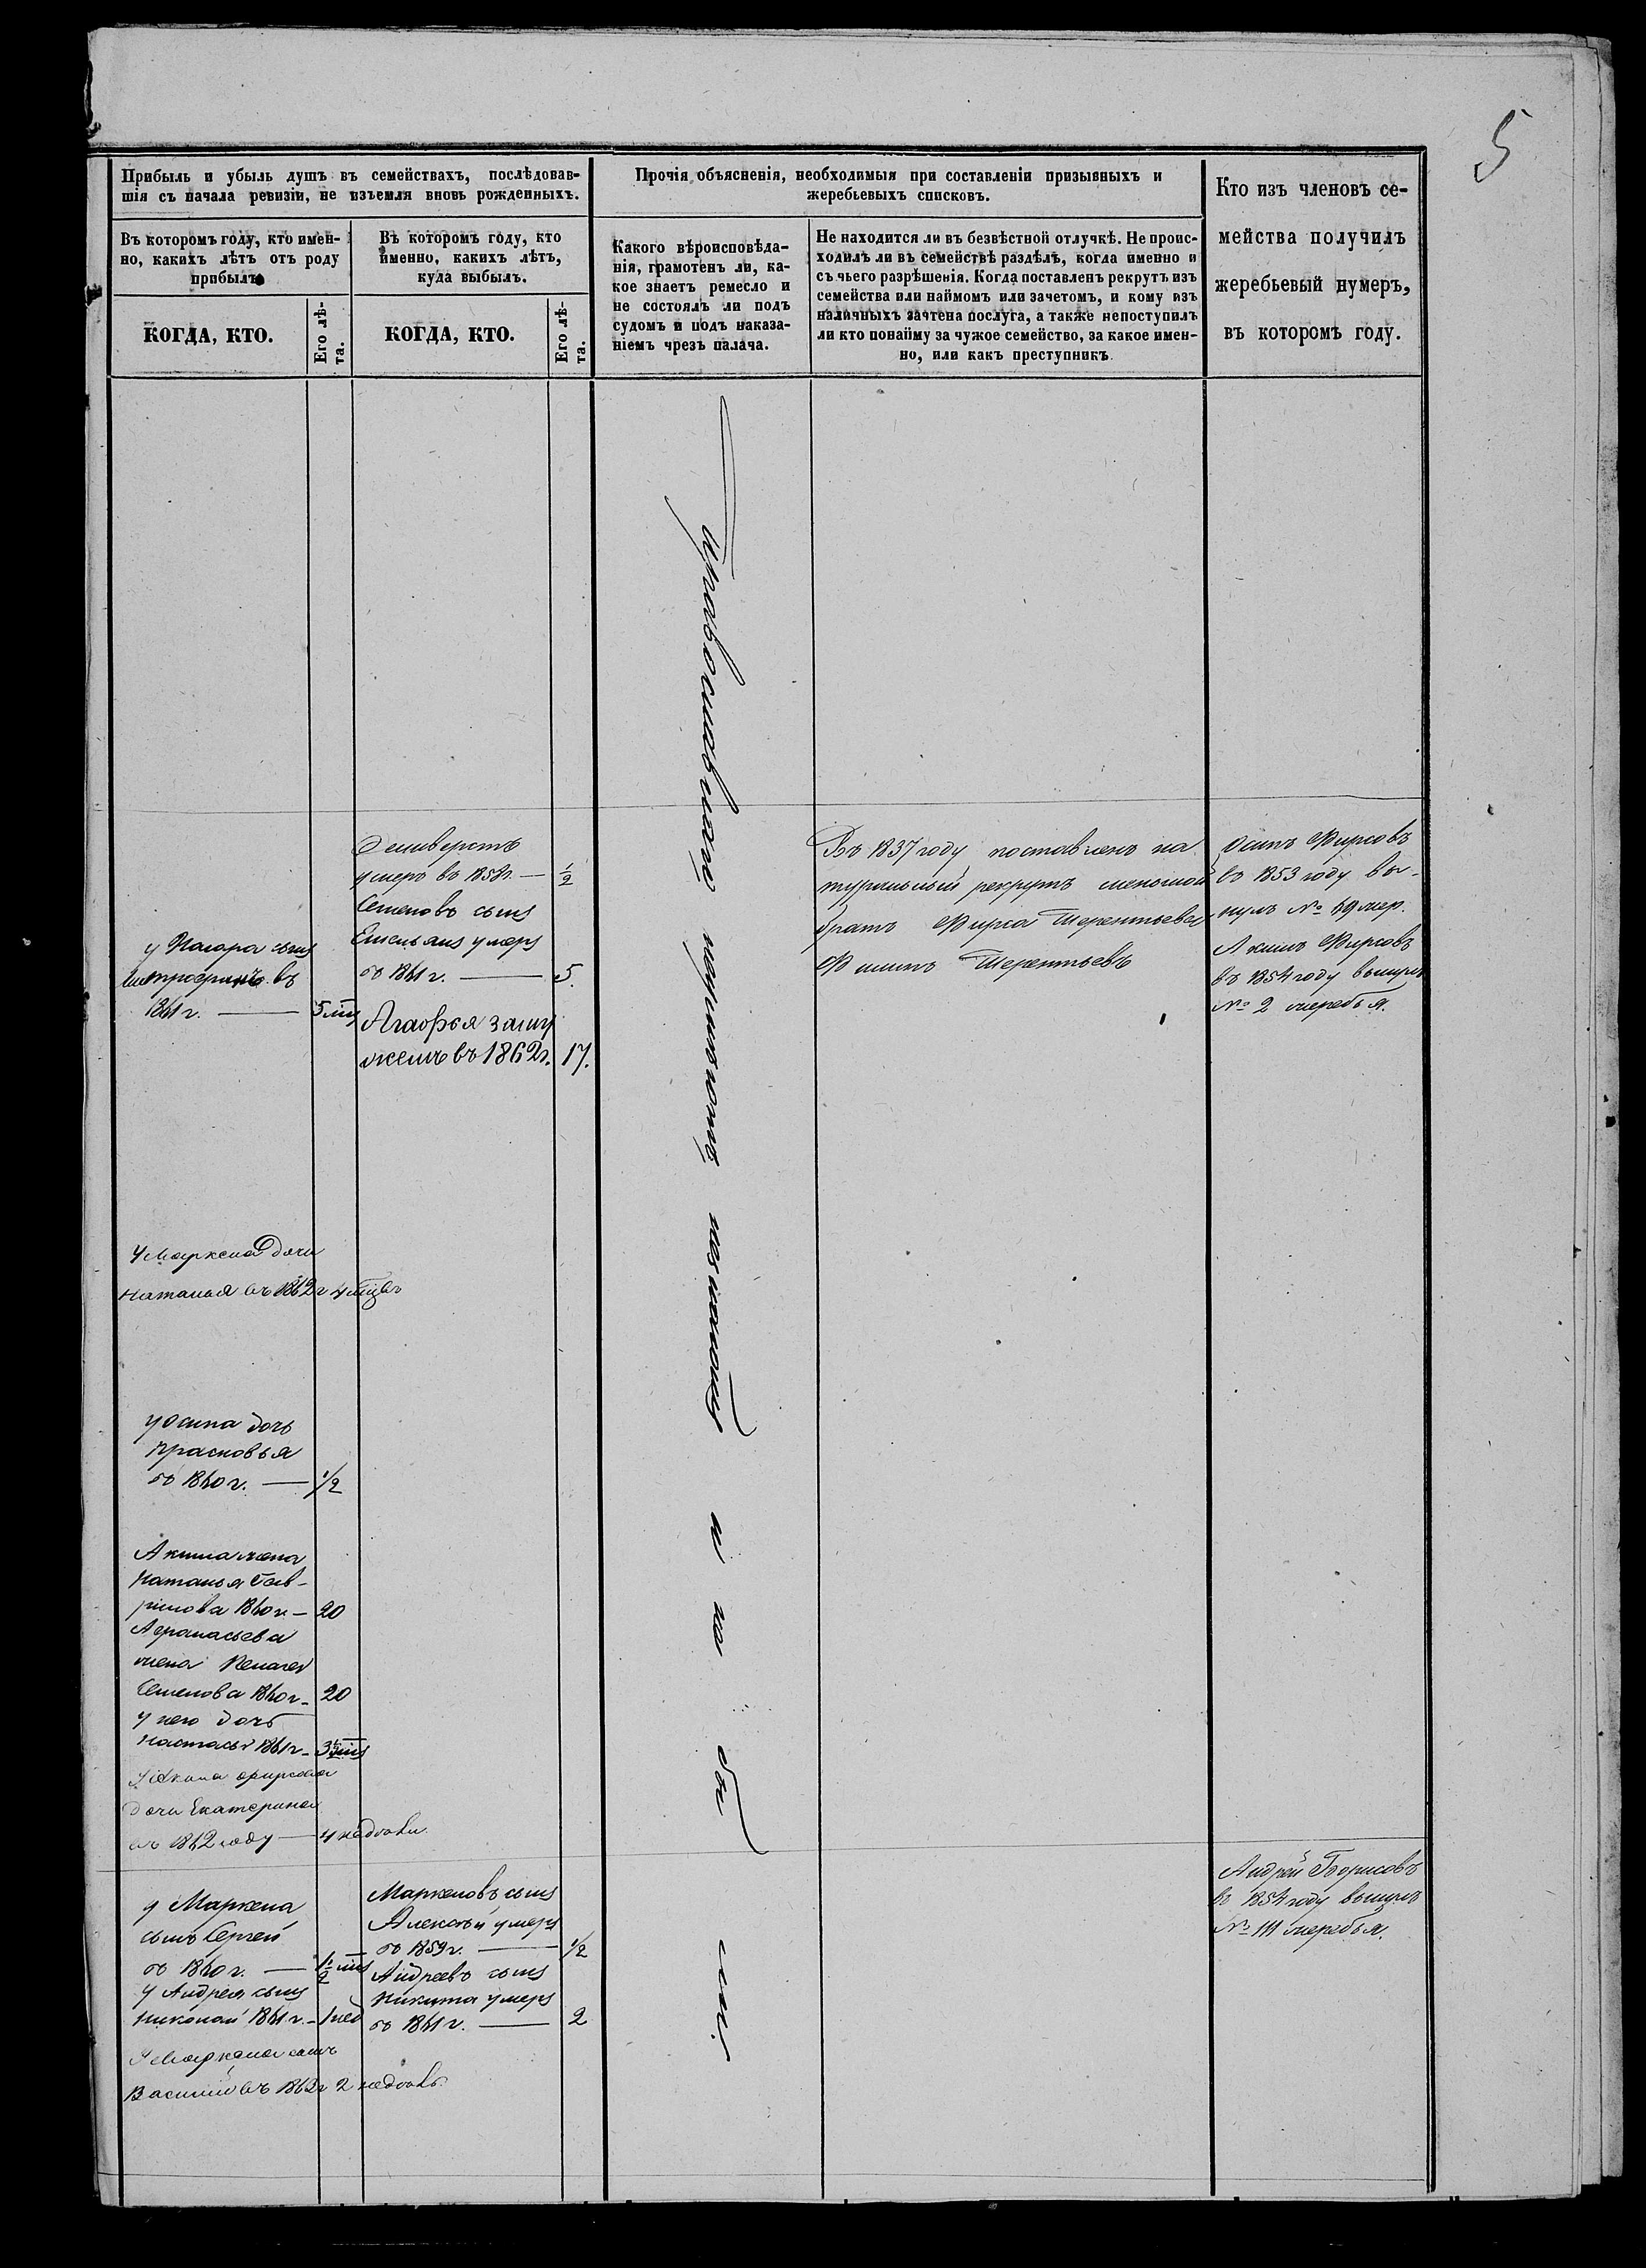 5
Прибыль и убыль душъ въ семействахъ, послѣдовав-
шія съ начала ревизіи, не изъемля вновь рожденныхъ.
Въ которомъ году, кто имен-
но, какихъ лѣтъ отъ роду
прибылъ
КОГДА, КТО.
Его лѣ-
та.
Въ которомъ году, кто
именно, какихъ лѣтъ,
куда выбылъ.
КОГДА, КТО.
Его лѣ-
та.
Прочія объясненія, необходимыя при составленіи призывныхъ и
жеребьевыхъ списковъ.
Какого вѣроисповѣда-
нія, грамотенъ ли, ка-
кое знаетъ ремесло и
не состоялъ ли подъ
судомъ и подъ наказа-
ніемъ чрезъ палача.
Не находится ли въ безвѣстной отлучкѣ. Не проис-
ходилъ ли въ семействѣ раздѣлъ, когда именно и
съ чьего разрѣшенія. Когда поставленъ рекрутъ изъ
семейства или наймомъ или зачетомъ, и кому изъ
наличныхъ зачтена послуга, а также непоступилъ
ли кто понайму за чужое семейство, за какое имен-
но, или какъ преступникъ.
Кто изъ членовъ се-
мейства получилъ
жеребьевый нумеръ,
въ которомъ году.
сынъ
въ
1861 г. — 5
У Маркела дочь
Наталья въ 1862 г 4
у Осипа дочь
Прасковья
въ 1860 г. — 1/2
Акима жена
Наталья Гав-
рилова 1860 г — 20
Афанасьева
жена
Семенова 1860 г — 20
у него дочь
Настасья 1861 г — 3
У Акима Фирсова
дочь Екатерина
въ 1862 году — 4 недѣли.
у Маркела
сынъ Сергей
въ 1860 г. — 1/2
У Андрея сынъ
Николай 1861 г. — 1 нед
У Маркела сынъ
Василій въ 1863 г 2 недѣль.
Селиверстъ
умеръ въ 1858 г. — 1/2
Семеновъ сынъ
Емельянъ умеръ
въ 1861 г. — 5.
Агафья заму
жемъ въ 1862 г. 17.
Маркеловъ сынъ
Алексѣй умеръ
въ 1859 г. — 1/2
Андреевъ сынъ
Никита умеръ
въ 1861 г. — 2
Въ 1837 году поставленъ на
туральный рекрутъ меньшой
братъ Фирса Терентьева
Филипъ Терентьевъ
Осипъ Фирсовъ
въ 1853 году вы-
нулъ № 69 жер.
Акимъ Фирсовъ
въ 1854 году вынулъ
№ 2 жеребья.
Андрей Борисовъ
въ 1854 году вынулъ
№ 111 жеребья.